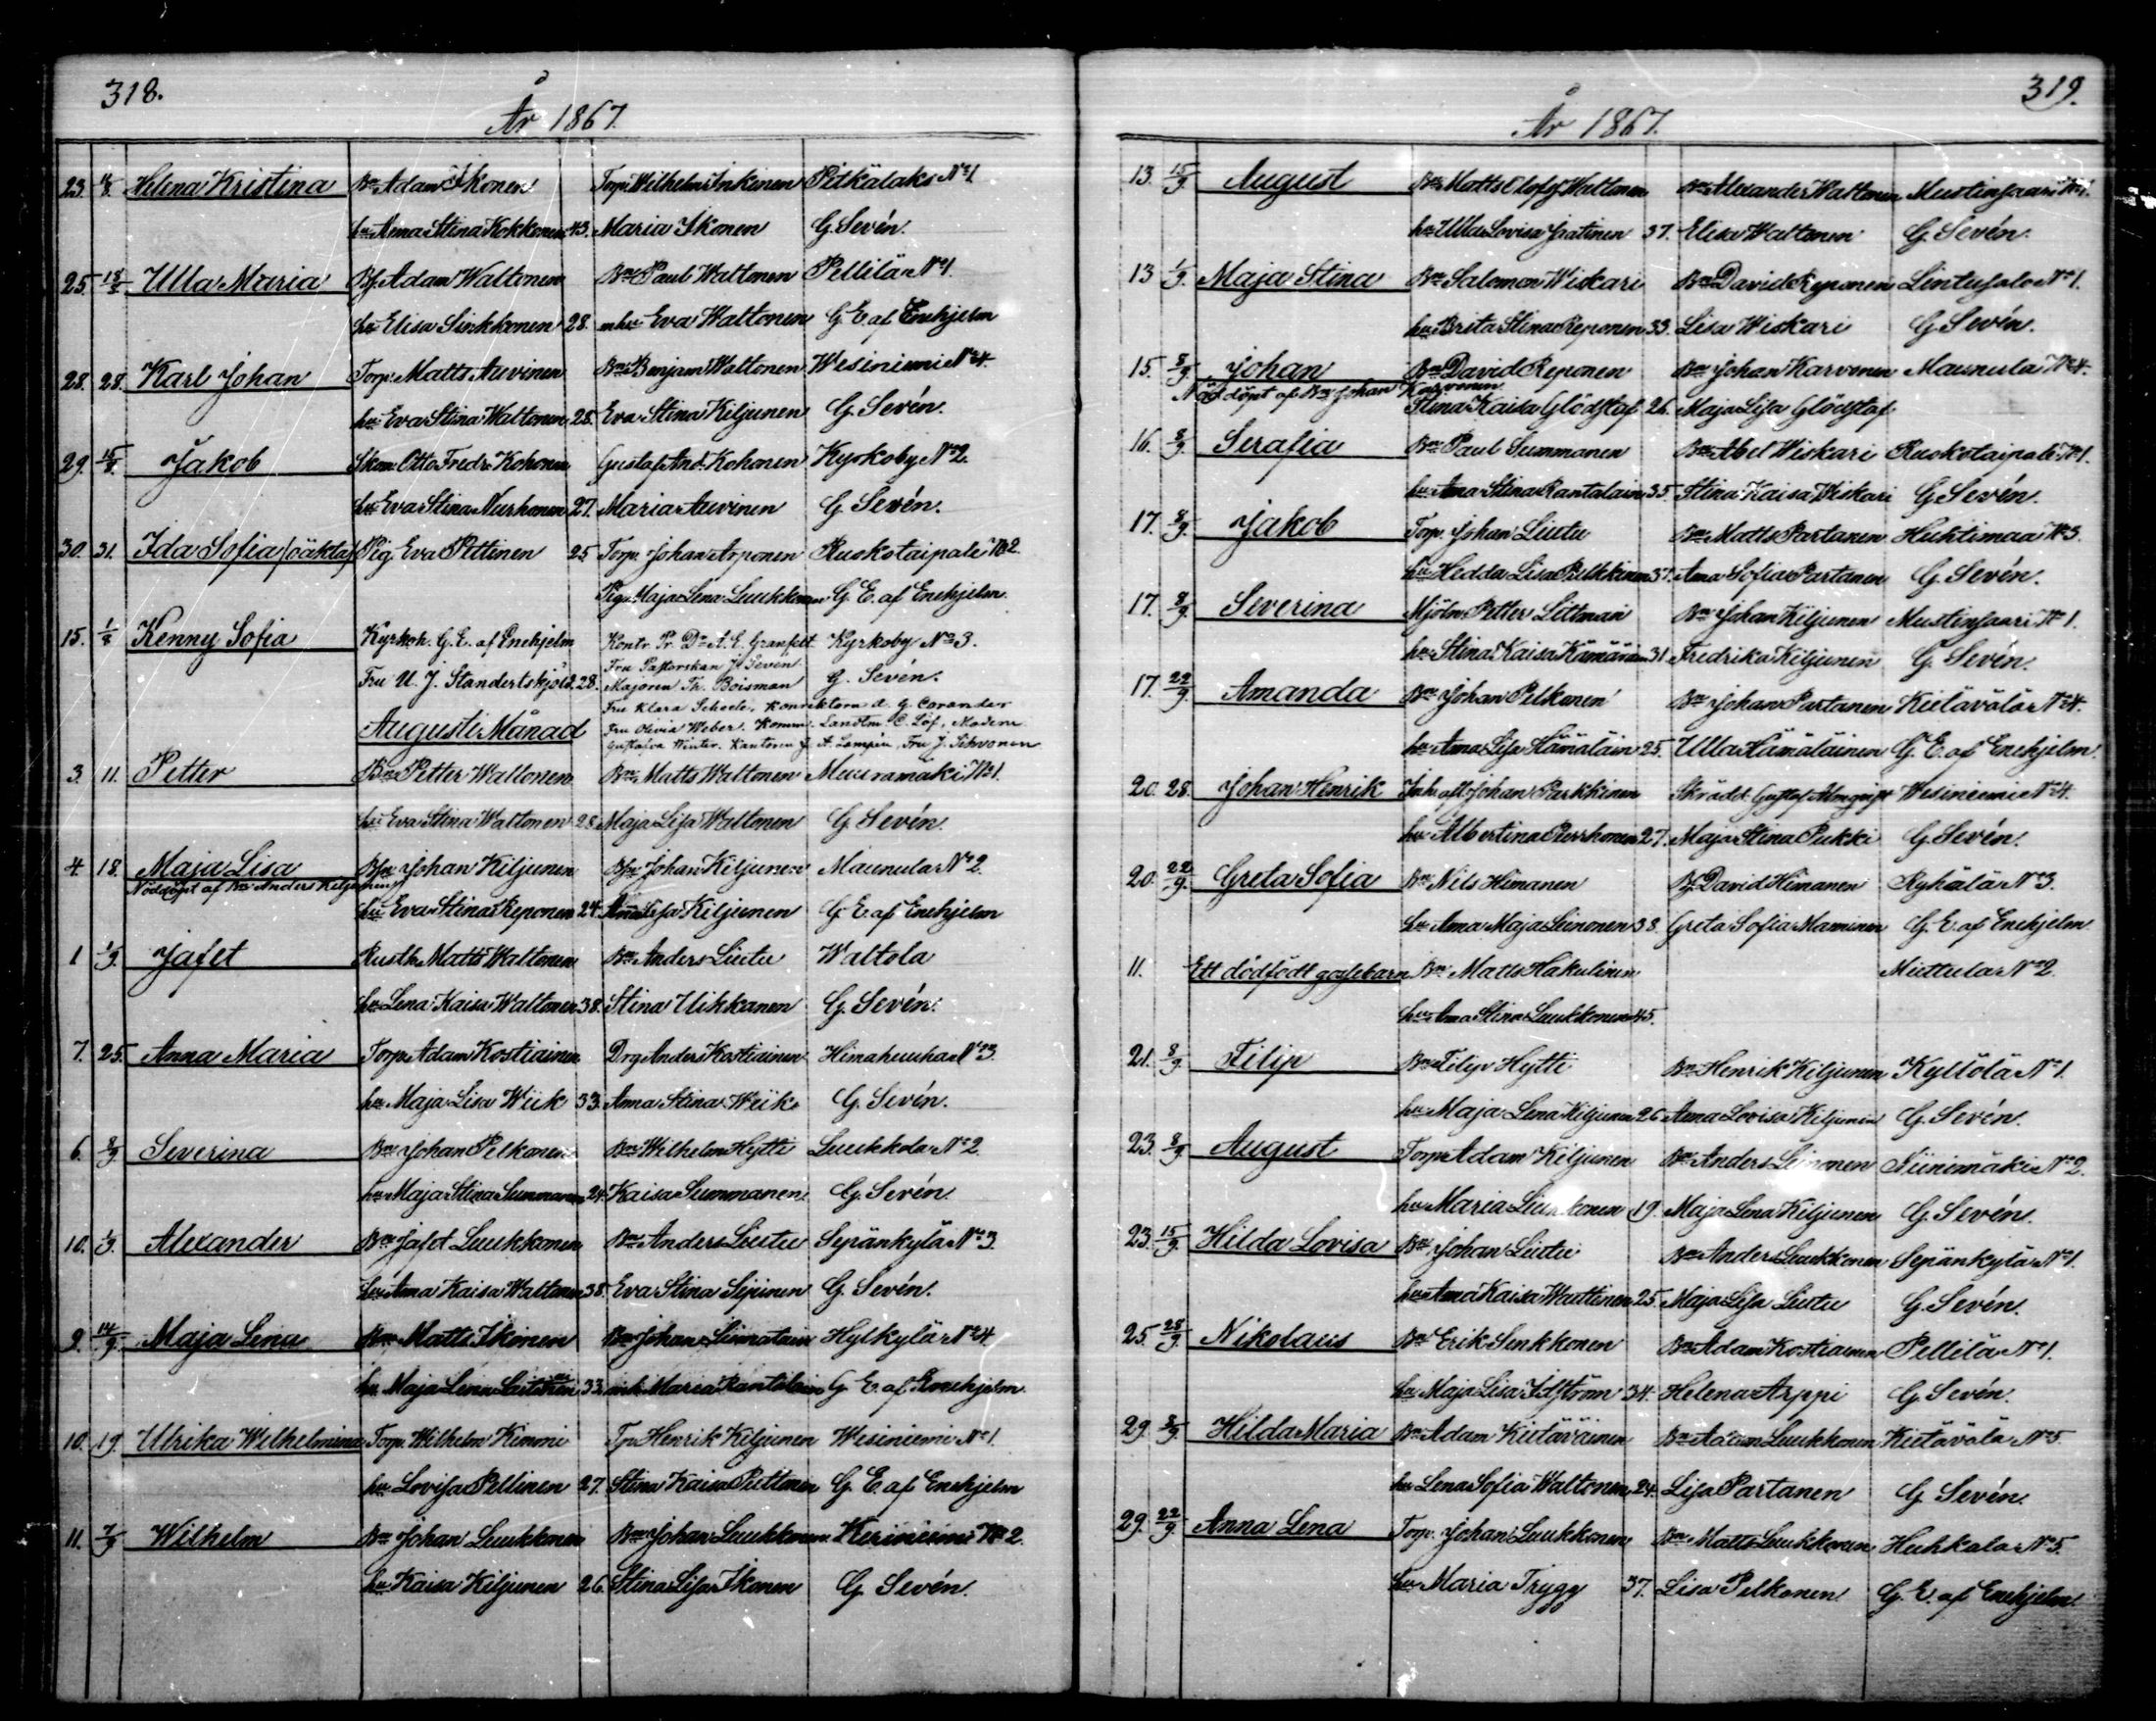 318.
År 1867.
23. 11/8 Helena Kristina Bn Adam Ikonen Torp. Wilhelm Inkinen Pitkälaks No 1
hu Anna Stina Kokkonen 43. Maria Ikonen G. Sevén.
25. 18/8 Ulla Maria Bf Adam Waltonen Bn Paul Waltonen Pellilä No 1.
hu Elisa Sinkkonen 28. mhu Eva Waltonen G. E. af Enehjelm
28. 28. Karl Johan Torp. Matts Auvinen Bn Benjam Waltonen Wesiniemi No 4.
hu Eva Stina Waltonen 28. Eva Stina Kiljunen G. Sevén.
29. Jakob Skom. Otto Fredr. Kohonen Gustaf And. Kohonen Kyrkoby No 2.
hu Eva Stina Nurhonen 27. Maria Auvinen G. Sevén.
30. 31. Ida Sofia (oäkta) Pig. Eva Pettinen 25 Torp. Johan Arponen Ruokotaipale No 2.
Pig. Maja Lena Luukkonen G. E. af Enehjelm.
15. 1/8 Kenny Sofia Kyrkoh. G. E. af Enehjelm Kontr. Pr. Dr A. E. Granfelt Kyrkoby No 3.
Fru Pastorskan J. Seven
Fru U. J. Standertskjöld 28. Majoren Th. Boisman G. Sevén.
Fru Klara Schoele, Konrektorn d. G. Corander
Augusti Månad Fru Olivia Weber. Komm. Landtm. C. Löf, Madem
Gustafva Winter. Kantoren J. A. Lampén, Fru J. Sihvonen
3. 11. Petter Bn Petter Waltonen Bn Matts Waltonen Muuramäki No 1.
hu Eva Stina Waltonen 28. Maja Lisa Waltonen G. Sevén.
4. 18. Maja Lisa Bfn Johan Kiljunen Bfn Johan Kiljunen Maunula No 2.
Nöddöpt af Bn Anders Kiljunen
hu Eva Stina Reponen 24. Anna Lisa Kiljunen G. E. af Enehjelm
1 1/9. Jafet Rusth. Matts Waltonen Bn Anders Liutu Waltola
hu Lena Kaisa Waltonen 38. Stina Uikkanen G. Sevén.
7. 25. Anna Maria Torp. Adam Kostiainen Drg Anders Kostiainen Himahuuha No 3.
hu Maja Lisa Wiik 33. Anna Stina Wiik G. Sevén.
6. 8/9. Severina Bn Johan Pelkonen Bn Wilhelm Hytti Luukkola No 2.
hu Maja Stina Summanen 24. Kaisa Summanen G. Sevén.
10. 1/9. Alexander Bn Jafet Luukkonen Bn Anders Liutu Sepänkylä No 3.
hu Anna Kaisa Waltonen 38. Eva Stina G. Sevén.
9. 14/9. Maja Lena Bn Matts Ikonen Bn Johan Hylkylä No 4.
hu Maja Lena 33. Maria Rantalain G. E. af Enehjelm.
10. 19. Ulrika Wilhelmina Torp. Wilhelm Kimmi Tp. Henrik Kiljunen Wesiniemi No 1.
hu Lovisa Pellinen 27. Stina Kaisa Puttonen G. E. af Enehjelm
11. Wilhelm Bn Johan Luukkonen Bn Johan Luukkonen Kiriniemi No 2.
hu Kaisa Kiljunen 26. Stina Lisa Ikonen G. Sevén.
319.
År 1867.
13. 15/9. August Bn Matts Elof Waltonen Bn Alexander Waltonen Mustinsaari No 1.
hu Ulla Lovisa 37. Elisa Waltonen G. Sevén.
13 1/9. Maja Stina Bn Salomon Wiskari Bn David Reponen Lintusalo No 1.
hu Brita Stina Reponen 33. Lisa Wiskari G. Sevén.
15. 8/9. Johan Bn David Reponen Bn Johan Karvonen Maunula No 4.
Nöddöpt af Bn Johan Karvonen
Stina Kaisa Glödstaf 26. Maja Lisa Glödstaf
16. 8/9. Serafia Bn Paul Summanen Bn Abel Wiskari Ruokotaipale No 1.
hu Anna Stina Rantalain 35. Stina Kaisa Wiskari G. Sevén.
17. 8/9. Jakob Torp. Johan Liutu Bn Matts Partanen Huktimaa No 3.
hu Hedda Lisa Pulkkinen 37. Anna Sofia Partanen G. Sevén.
17. 8/9. Severina Mjöln. Petter Littman Bn Johan Kiljunen Mustinsaari No 1.
hu Stina Kaisa Kämäräin 31. Fredrika Kiljunen G. Sevén.
17. 22/9. Amanda Bn Johan Pelkonen Bn Johan Partanen Kietävälä No 4.
hu Anna Lisa Hämäläin 25. Ulla Hämäläinen G. E. af Enehjelm.
20. 28. Johan Henrik Inh. afl. Johan Parkkinen Skrädd. Gustaf Almqvist Wesiniemi No 4.
hu Albertina Purhonen 27. Maja Stina Pukki G. Sevén.
20. 22/9. Greta Sofia Bn Nils Himanen Bf David Himanen Ryhälä No 3.
hu Anna Maja Leinonen 38. Greta Sofia Manninen G. E. af Enehjelm
11. Ett dödfödt gossebarn Bn Matts Hakulinen Miettula No 2.
hu Anna Stina Luukkonen 45.
21. 8/9. Filip Bn Filip Hytti Bn Henrik Kiljunen Kyllölä No 1.
hu Maja Lena Kiljunen 26 Anna Lovisa Kiljunen G. Sevén.
23. 8/9. August Torp. Adam Kiljunen Bn Anders Leinonen Niinimäki No 2.
hu Maria Luukkonen 19. Maja Lena Kiljunen G. Sevén.
23. 15/9. Hilda Lovisa Bn Johan Liutu Bn Anders Luukkonen Sepänkylä No 1.
hu Anna Kaisa Wauttinen 25. Maja Lisa Liutu G. Sevén.
25. 28/9. Nikolaus Bn Erik Sinkkonen Bn Adam Kostiainen Pellilä No 1.
hu Maja Lisa Idström 34. Helena Arppi G. Sevén.
29. 8/9. Hilda Maria Bn Adam Kietäväinen Bn Adam Luukkonen Kietävälä No 5.
hu Lena Sofia Waltonen 24. Lisa Partanen G. Sevén.
29. 22/9. Anna Lena Torp. Johan Luukkonen Bn Matts Luukkonen Huhkala No 5.
hu Maria Trygg 37. Lisa Pelkonen G. E. af Enehjelm.